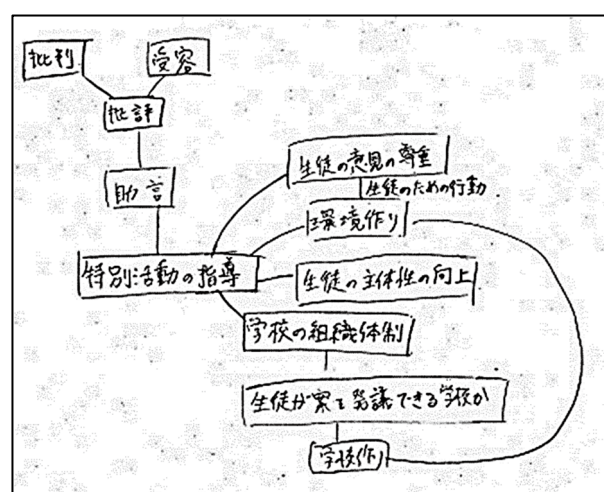 批判
受容
批評
助言
生徒の意見の尊重
生徒のための行動
環境作り
特別活動の指導
生徒の主体性の向上
学校の組織体制
生徒が案を発議できる学校か
学校作り